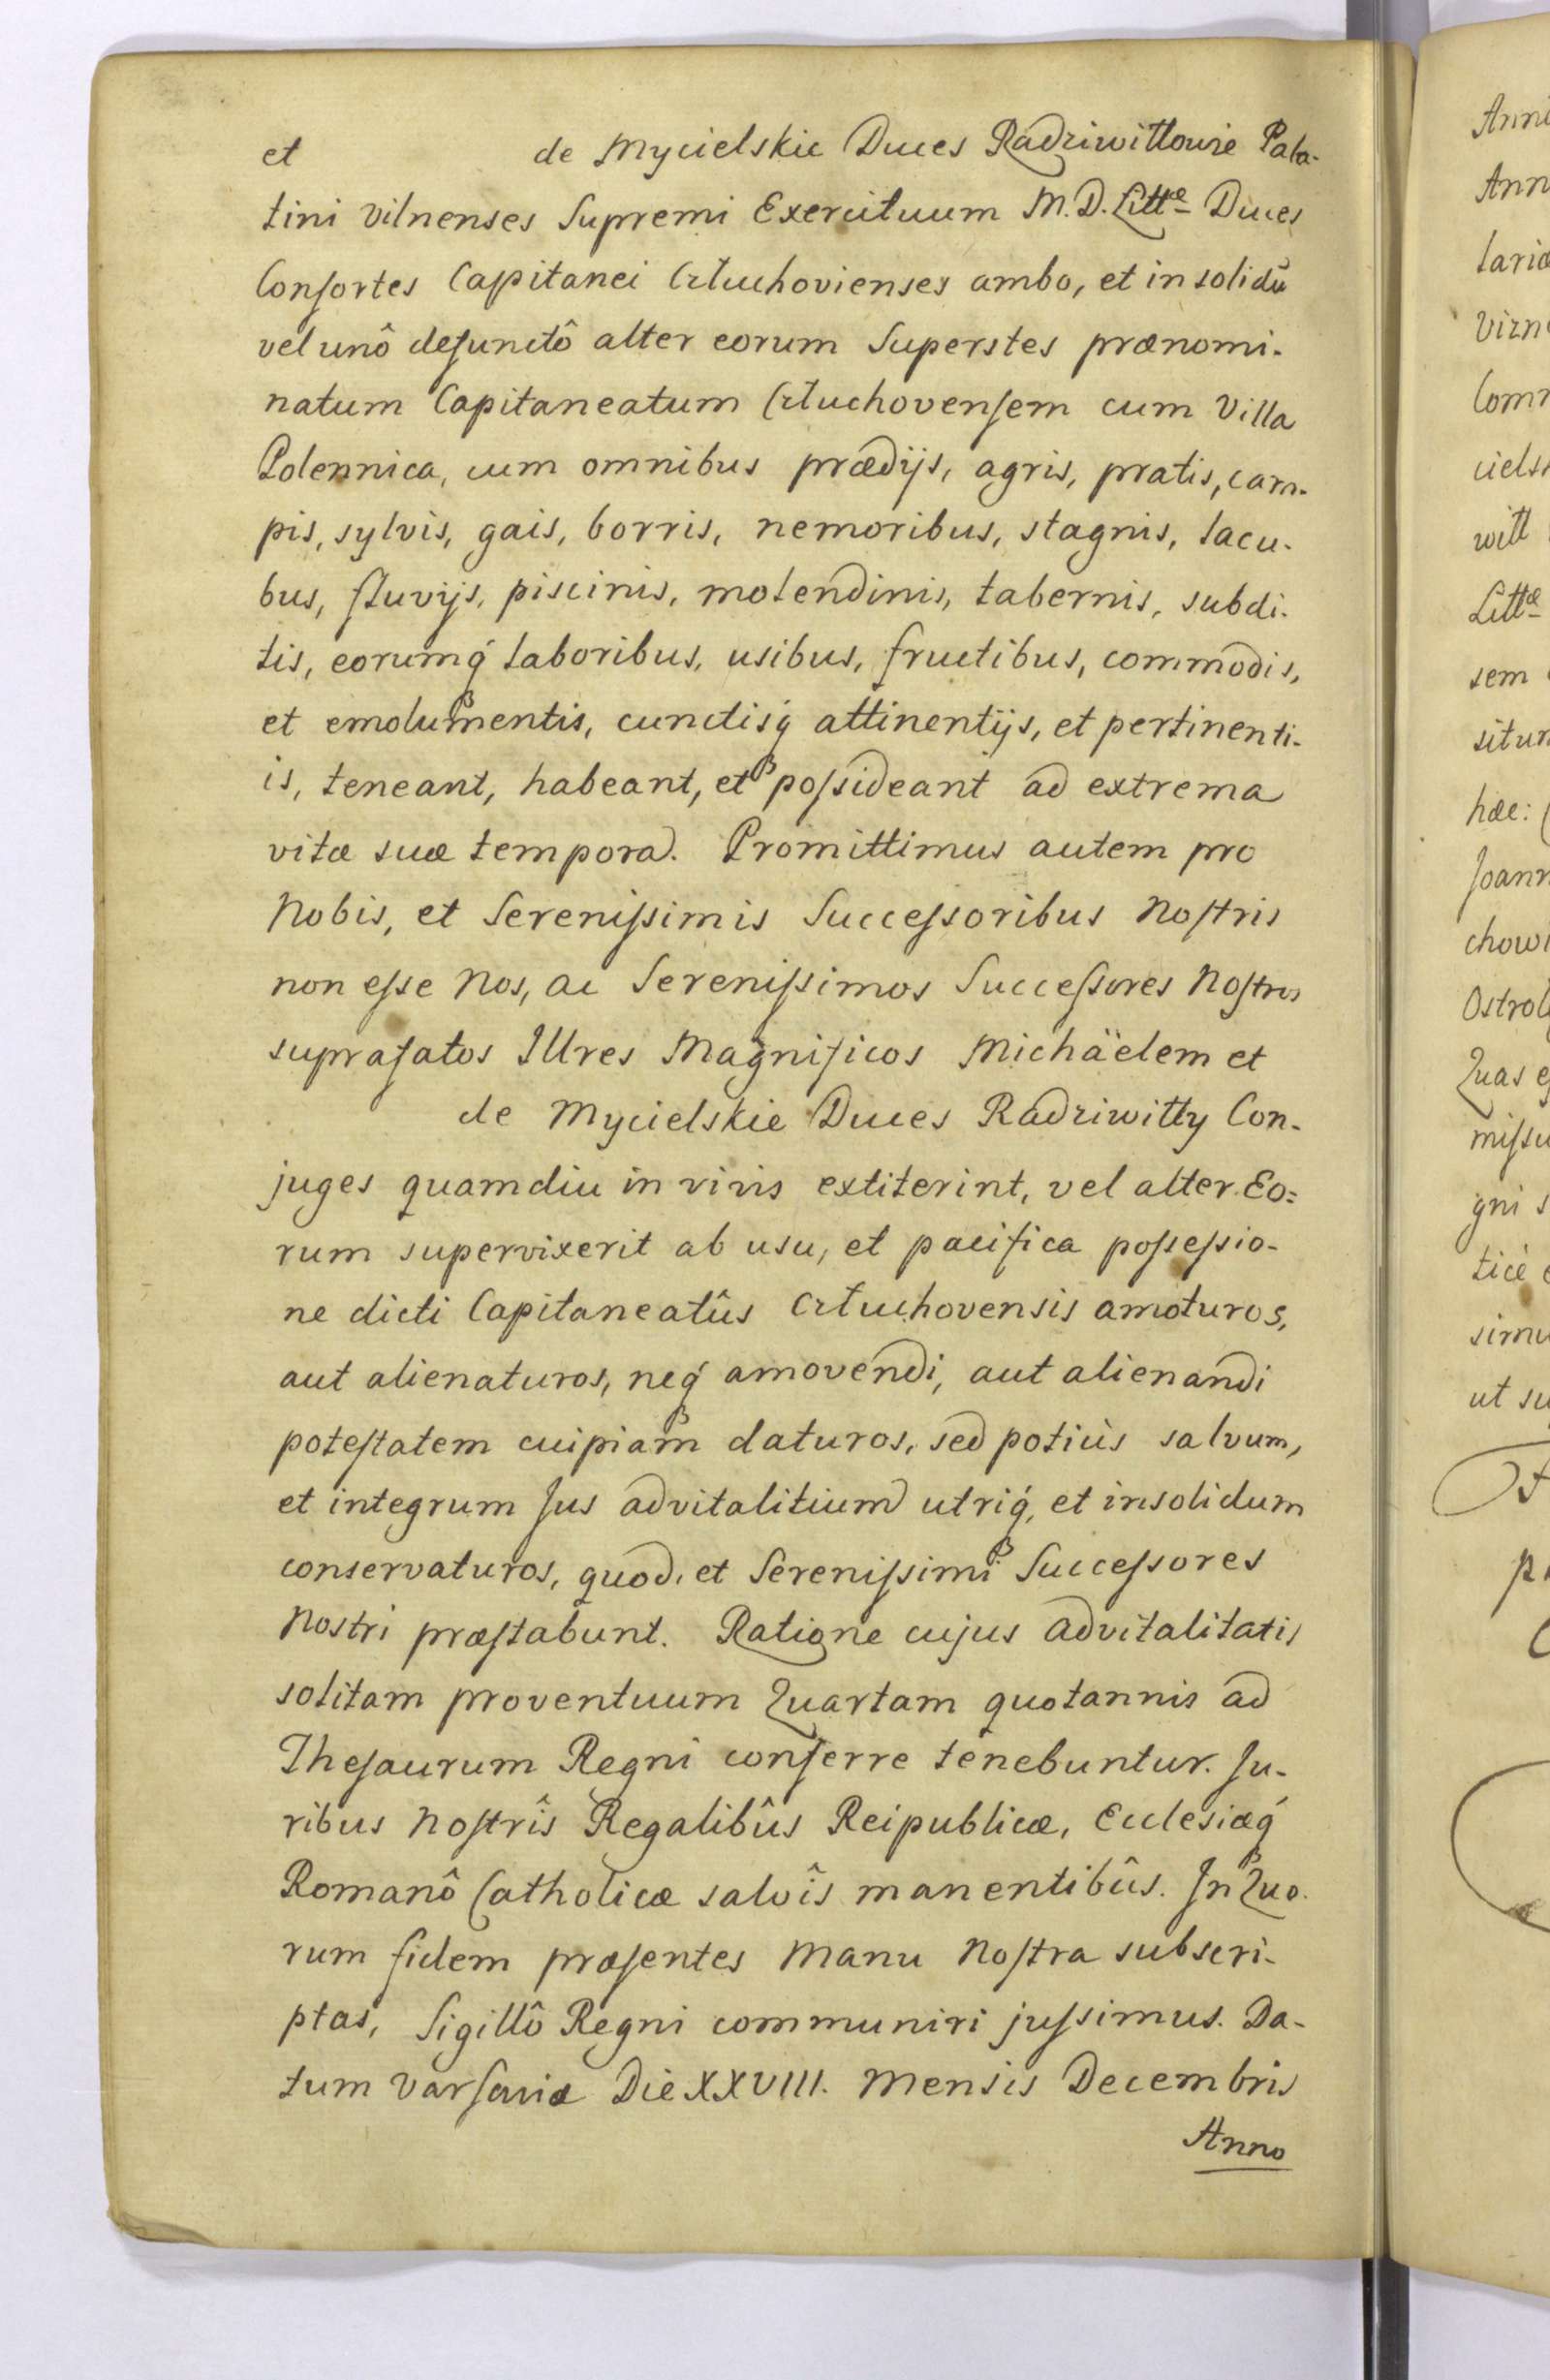 et de Mycielskie Duces Radziwiłłowie Pala-
tini Vilnenses Supremi Exercituum M. D. Littæ Duces
Consortes Capitanei Człuchovienses ambo, et in solidū
vel unô defunctô alter eorum Superstes prænomi-
natum Capitaneatum Człuchovensem cum Villa
Polennica, cum omnibus prædijs, agris, pratis, cam-
pis, sylvis, gais, borris, nemoribus, stagnis, lacu-
bus, fluvijs, piscinis, molendinis, tabernis, subdi-
tis, eorumq́ laboribus, usibus, fructibus, commodis,
et emolumentis, cunctisq́ attinentijs, et pertinenti-
is, teneant, habeant, et possideant ad extrema
vitæ suæ tempora. Promittimus autem pro
Nobis, et Serenissimis Successoribus Nostris
non esse Nos, ac Serenissimos Successores Nostros
suprafatos Illres Magnificos Michäelem et
de Mycielskie Duces Radziwiłły Con-
juges quamdiu in vivis extiterint, vel alter Eo=
rum supervixerit ab usu, et pacifica possessio-
ne dicti Capitaneatûs Człuchovensis amoturos,
aut alienaturos, neq́ amovendi, aut alienandi
potestatem cuipiam daturos, sed potiùs salvum,
et integrum Jus advitalitium utriq́, et insolidum
conservaturos, quod, et Serenissimi Successores
Nostri præstabunt. Ratione cujus advitalitatis
solitam proventuum Quartam quotannis ad
Thesaurum Regni conferre tenebuntur. Ju-
ribus Nostrîs Regalibûs Reipublicæ, Ecclesiæq́
Romanô Catholicæ salvîs manentibûs. In Quo-
rum fidem præsentes Manu Nostra subscri-
ptas, Sigillô Regni communiri jussimus. Da-
tum Varsaviæ Die XXVIII. Mensis Decembris
Anno